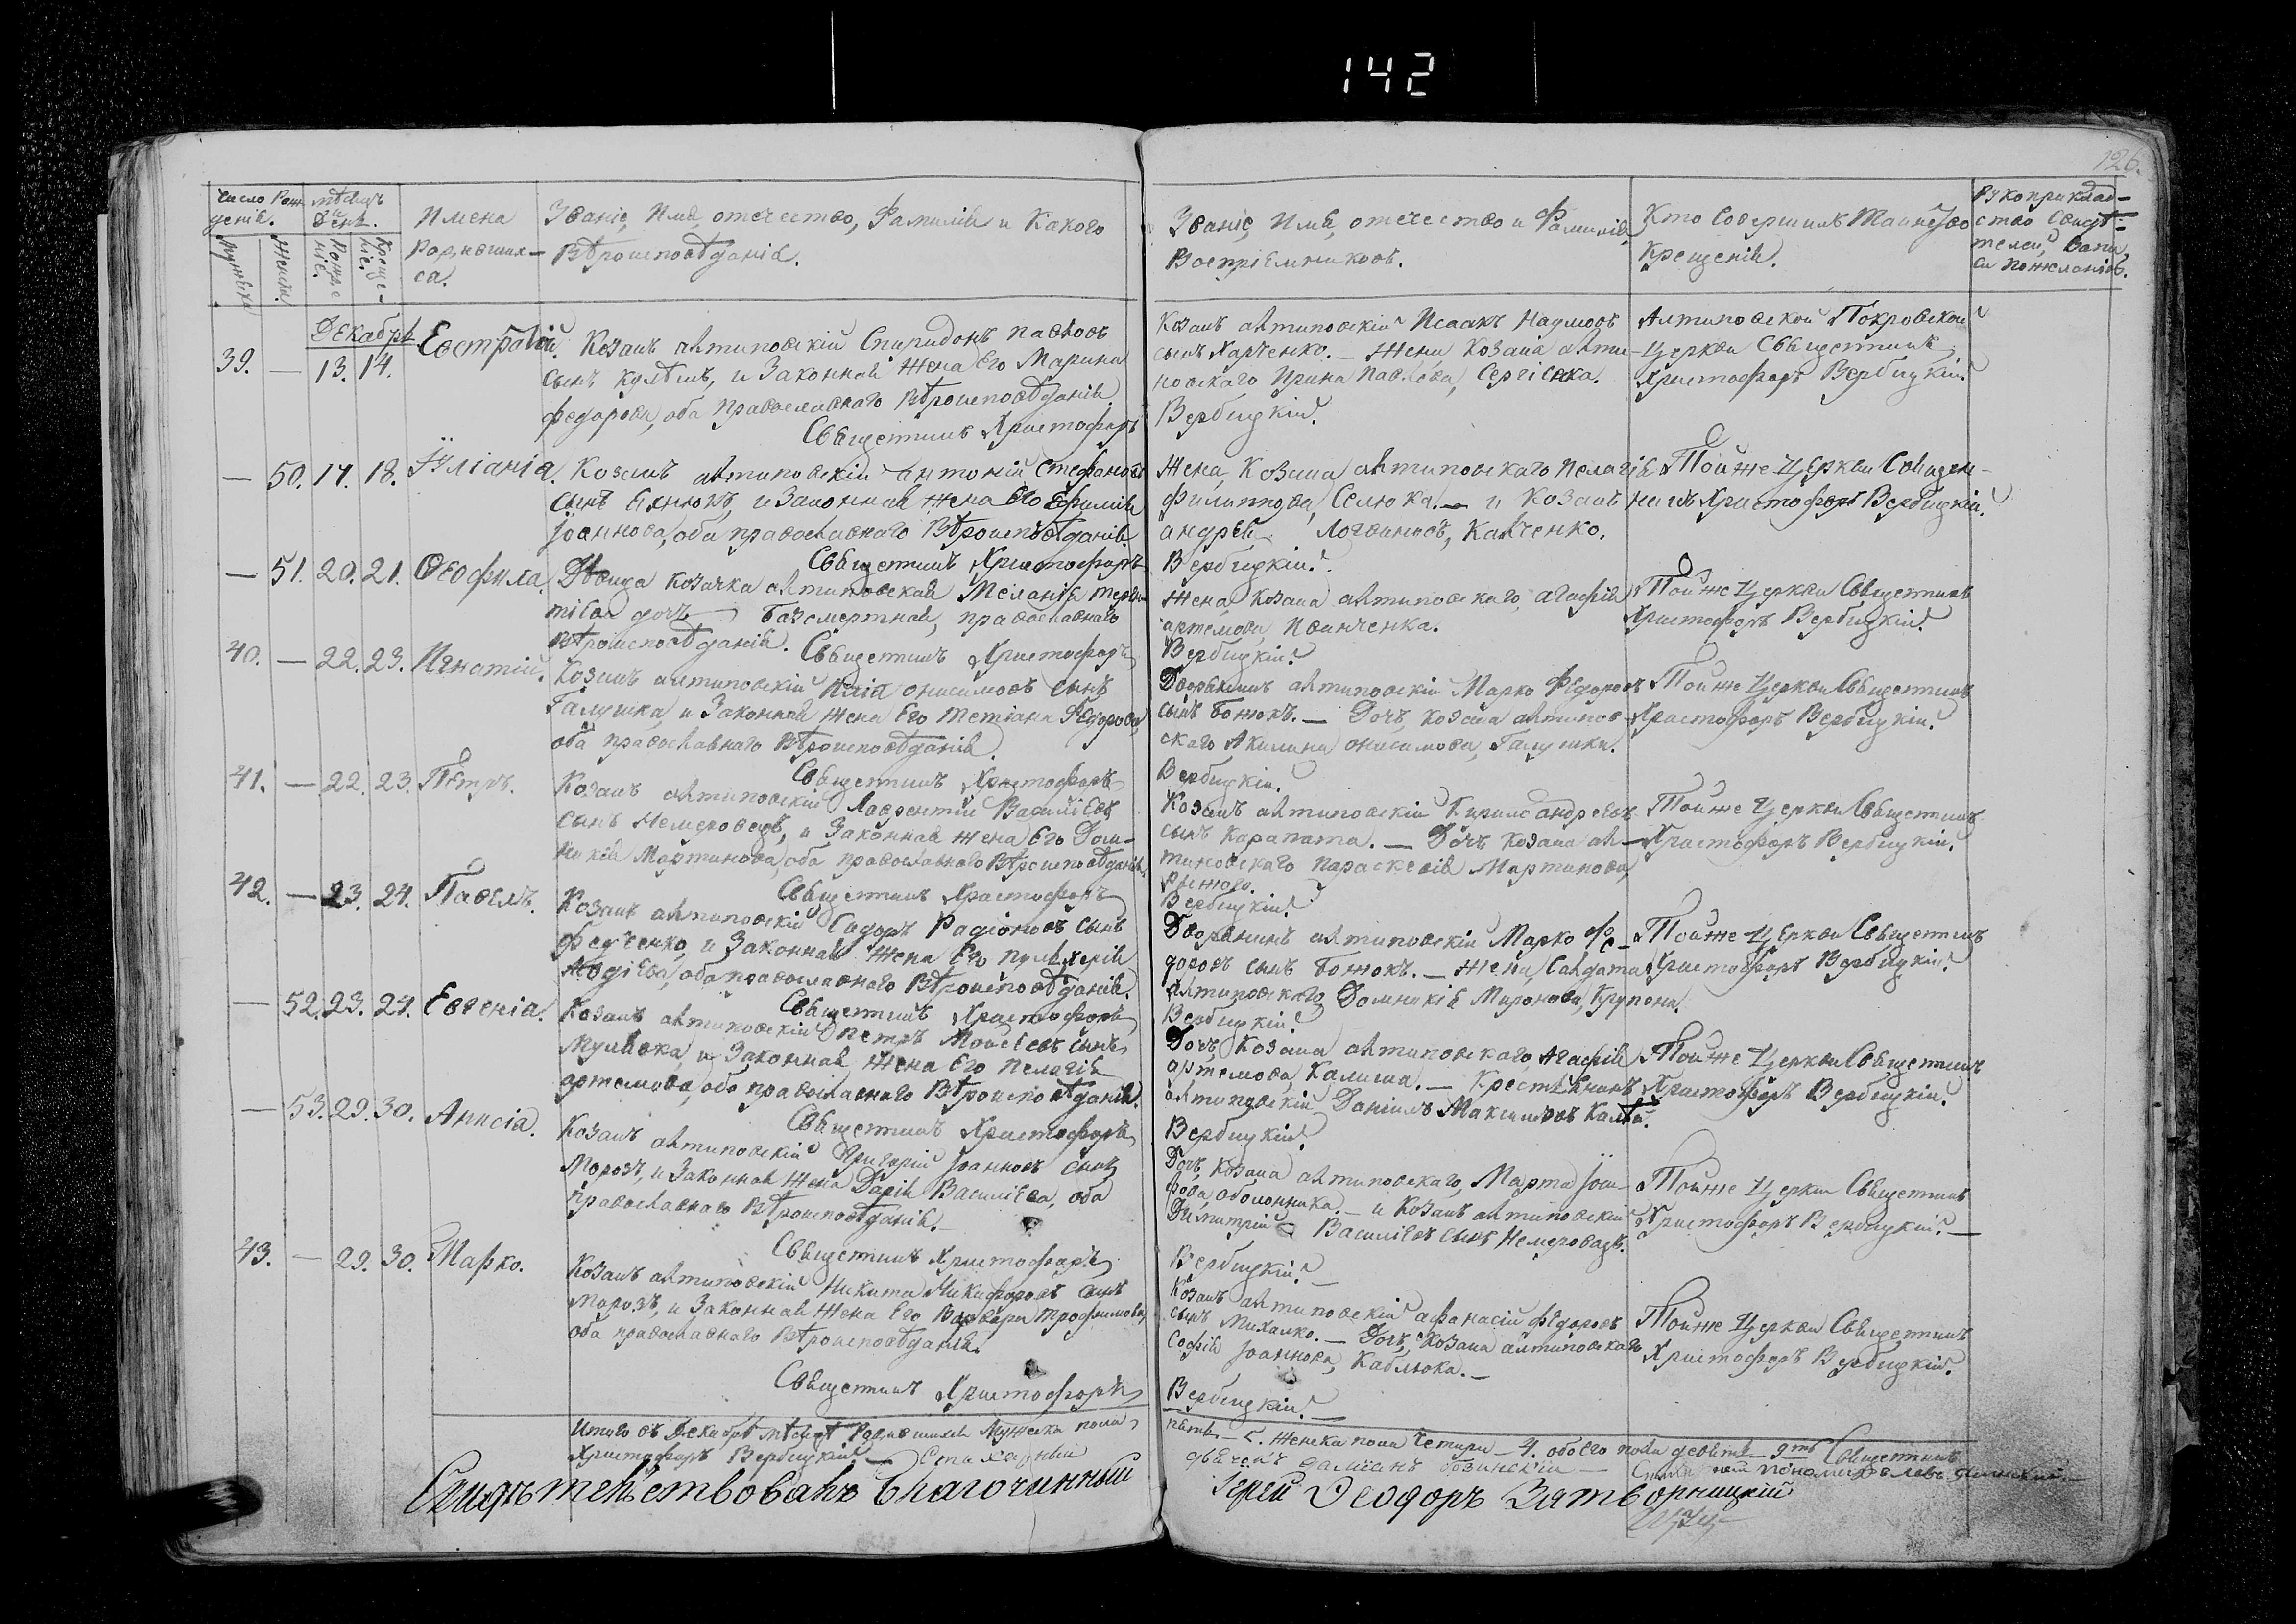 142
126.
Число Рож
денія.
мѣсяцъ
День.
Имена
Родивших-
ся.
Званіе, Имя, отечество, Фамилія и Какого
Вѣроисповѣданія.
Званіе, Имя, отечество и Фамилія
Воспріемниковъ.
Кто Совершилъ Таинство
Крещенія.
Рукоприклад-
ство Свидѣ-
телей, Запи
си По желанію.
Декабрь
39. — 13. 14. Евстратій.
Козакъ антиповскій Спиридонъ Павловъ
Сынъ Кулѣшъ, и Законная Жена Его Марина
Федорова, оба Православнаго Вѣроисповѣданія.
Священникъ Христофоръ
Козакъ антиповскій Исаакъ Наумовъ
сынъ Харченко. — Жена Козака анти-
повскаго Ирина Павлова, Сергіенка.
Вербицкій.
Антиповской Покровской
Церкви Священникъ
Христофоръ Вербицкій.
— 50. 17. 18. Іуліанія.
Козакъ антиповскій антоній Стефановъ
Сынъ, и Законная Жена Его
Іоаннова, оба православнаго Вѣроисповѣданія.
Священникъ Христофоръ
Жена, Козака антиповскаго Пелагія
Филиппова, Селюка. — и Козакъ
андрей Логвиновъ, Кавченко.
Вербицкій.
Тойже Церкви Священ-
никъ Христофоръ Вербицкій.
— 51. 20. 21. Ѳеофила.
Дѣвица козачка антиповская Меланія
дочь Базсмертная, православнаго
Вѣроисповѣданія. Священникъ Христофоръ
Жена, Козака антиповскаго, агафія
артемова, Иванченка.
Вербицкій.
Тойже Церкви Священникъ
Христофоръ Вербицкій.
40. — 22. 23. Игнатій.
Козакъ антиповскій Илія онисимовъ Сынъ
Галушка, и Законная Жена Его Татіана Федорова,
оба православнаго Вѣроисповѣданія.
Священникъ Христофоръ
Дворянинъ антиповскій Марко Федоровъ
сынъ Божокъ. — Дочь, козака антипов-
скаго Акилина онисимова, Галушки.
Вербицкій.
Тойже Церкви Священникъ
Христофоръ Вербицкій.
41. — 22. 23. Петръ.
Козакъ антиповскій Лаврентій Василіевъ
Сынъ Немеровецъ, и Законная жена Его Дом-
никія Мартинова, оба православнаго Вѣроисповѣданія.
Священникъ Христофоръ
Козакъ антиповскій Кирилъ андреевъ
сынъ Карапата. — Дочь Козака ан-
типовскаго Параскевія Мартинова,
Вербицкій.
Тойже Церкви Священникъ
Христофоръ Вербицкій.
42. — 23. 24. Павелъ.
Козакъ антиповскій Сидоръ Радіоновъ Сынъ
Федченко, и Законная Жена Его Пулхерія
оба православнаго Вѣроисповѣданія.
Священникъ Христофоръ
Дворянинъ антиповскій Марко Фе-
доровъ сынъ Божокъ. — Жена, Салдата
антиповскаго Домникія Миронова, Крупони.
Вербицкій.
Тойже Церкви Священникъ
Христофоръ Вербицкій.
— 52. 23. 24. Евгенія.
Козакъ антиповскій Петръ Моисеевъ Сынъ
Мулявка, и Законная Жена Его Пелагія
артемова, оба православнаго Вѣроисповѣданія.
Священникъ Христофоръ
Дочь, Козака антиповскаго, Агафія
артемова, Калиша. — Крестянинъ
антиповскій Даніилъ Максимовъ
Вербицкій.
Тойже Церкви Священникъ
Христофоръ Вербицкій.
— 53. 29. 30. Анисія.
Козакъ антиповскій Григорій Іоанновъ сынъ
Морозъ, и Законная Жена Дарія Василіева, оба
Православнаго Вѣроисповѣданія. —
Священникъ Христофоръ
Дочь, Козака антиповскаго, Марта
оболонника. — и Козакъ антиповскій
Димитрій Василіевъ Сынъ Немеровецъ.
Вербицкій. —
Тойже Церкви Священникъ
Христофоръ Вербицкій. —
43. — 29. 30. Марко.
Козакъ антиповскій Никита Никифоровъ Сынъ
Морозъ, и Законная Жена Его Варвара Трофимова,
оба православнаго Вѣроисповѣданія.
Священникъ Христофоръ
Козакъ антиповскій афанасій Федоровъ
сынъ Михалко. — Дочь, Козака антиповскаго
Софія Іоаннова, Каблюка. —
Вербицкій. —
Тойже Церкви Священникъ
Христофоръ Вербицкій.
Итого въ Декабрѣ мѣсяцѣ Родившихся Мужеска пола
пять — 5. Женска пола Четыри — 4. обоего пола девять — 9ть Священникъ
Христофоръ Вербицкій. —
Свидѣтельствовалъ Благочинный
Іерей Ѳеодоръ Затворницкій